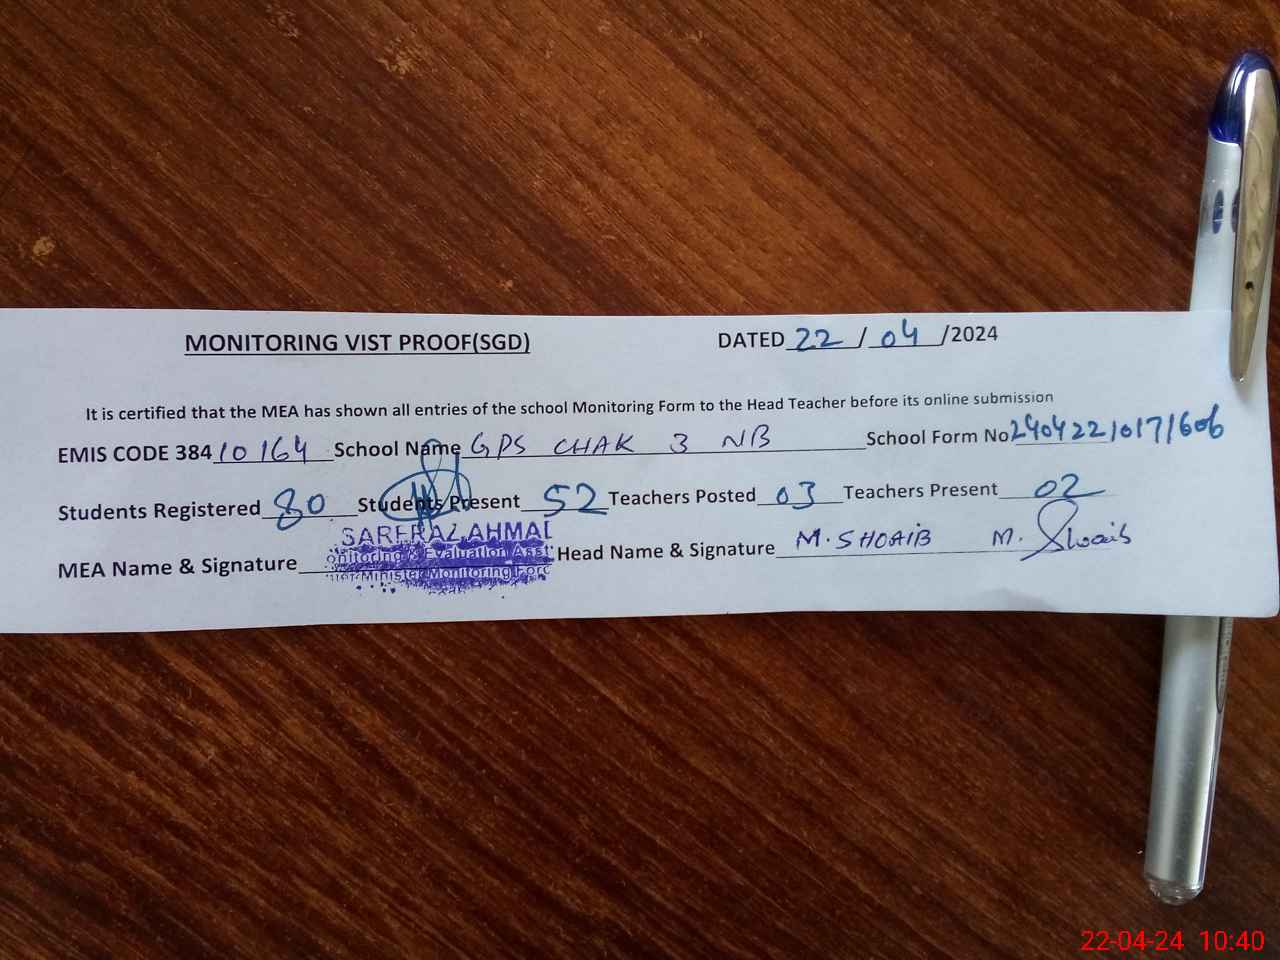 MONITORING VIST PROOF(SGD) DATED 22 / 04 /2024
It is certified that the MEA has shown all entries of the school Monitoring Form to the Head Teacher before its online submission
EMIS CODE 384 10164 School Name GPS CHAK 3 NB School Form No 24042210171606
Students Registered 80 Students Present 52 Teachers Posted 03 Teachers Present 02
MEA Name & Signature SARFRAZ AHMAD Head Name & Signature M. SHOAIB M. Shoaib
onitoring & Evaluation Asst
Minister Monitoring Forc
22-04-24 10:40